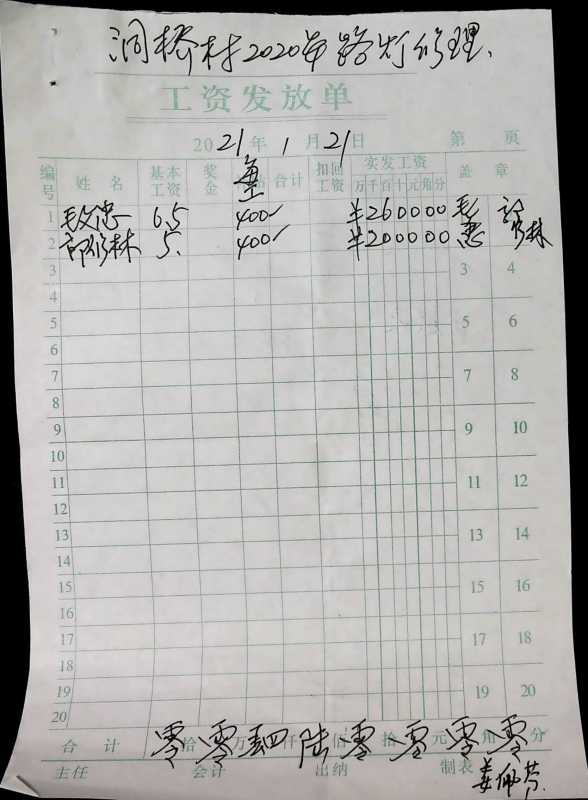 洞桥村2020年路灯修理、
工资发放单
2021年1月21日 第 页
编号 姓名 基本工资 奖金 每工 合计 扣回工资 实发工资 盖章
万千百十元角分
1 6.5 400 ¥2600.00
2 5. 400 ¥2000.00
3 3 4
4
5 5 6
6
7 7 8
8
9 9 10
10
11 11 12
12
13 13 14
14
15 15 16
16
17 17 18
18
19 19 20
20
合计 零拾零万肆仟陆佰零拾零元零角零分
主任 会计 出纳 制表 姜佩芬